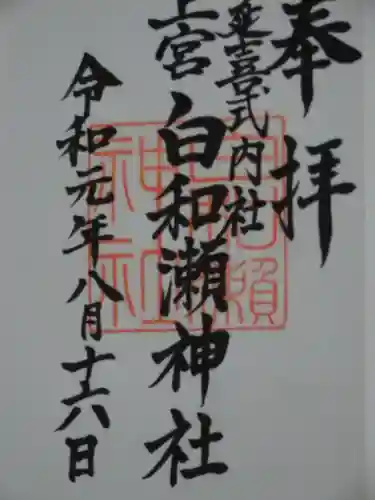 奉拝
延喜式内社
上宮 白和瀬神社
令和元年八月十六日